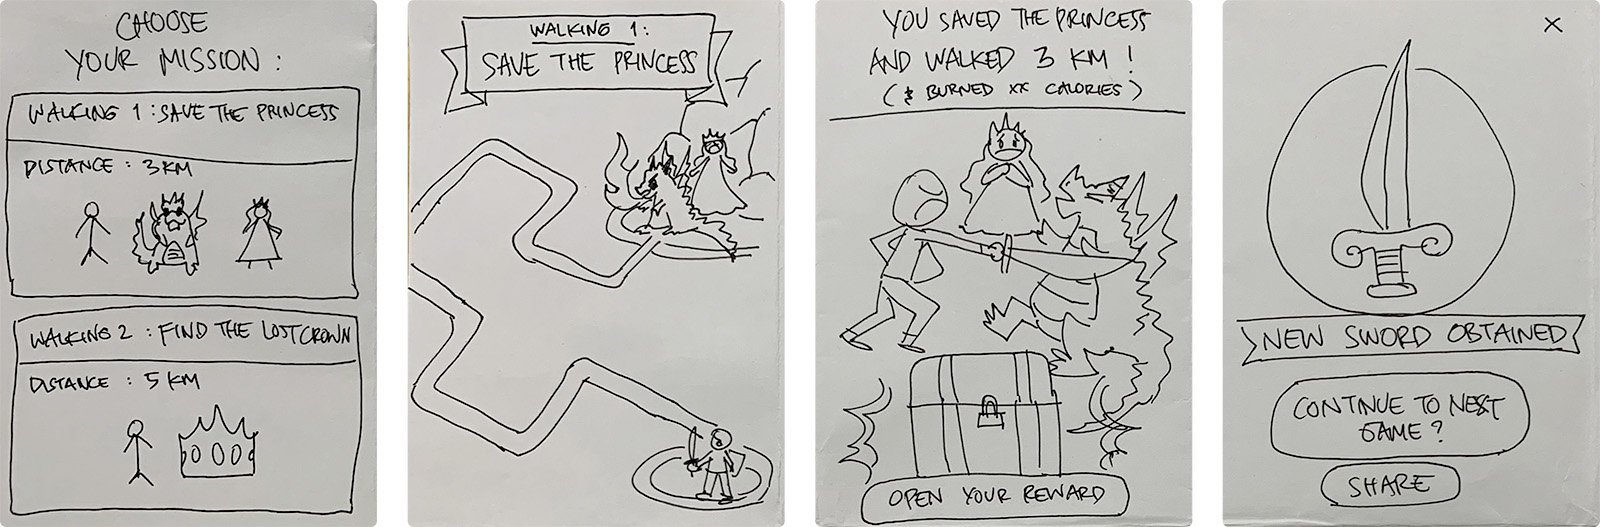 CHOOSE
YOUR MISSION :
WALKING 1 : SAVE THE PRINCESS
DISTANCE : 3 KM
WALKING 2 : FIND THE LOST CROWN
DISTANCE : 5 KM
WALKING 1 :
SAVE THE PRINCESS
YOU SAVED THE PRINCESS
AND WALKED 3 KM !
( & BURNED XX CALORIES )
OPEN YOUR REWARD
X
NEW SWORD OBTAINED
CONTINUE TO NEXT
GAME ?
SHARE